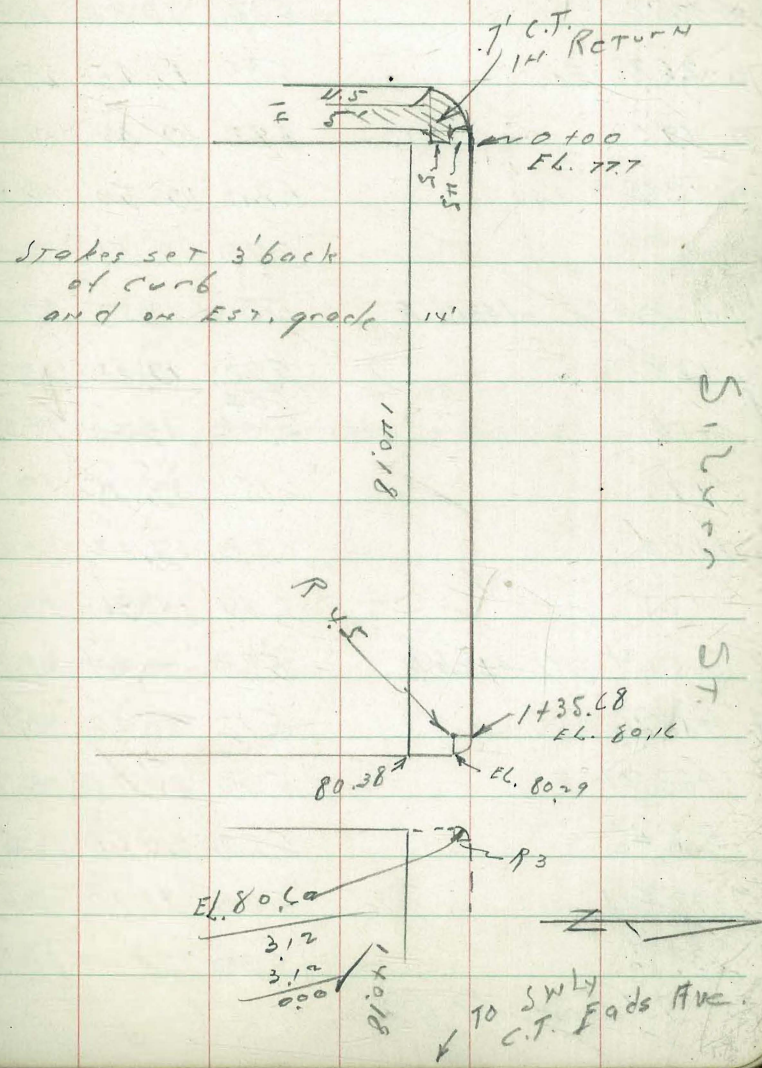 7' C.T.
IN RETURN
4.5
5'
0+00
EL. 77.7
5
4.5
Stakes set 3' back
of curb
and on Est. grade
14'
140.18
Silver St.
R 4.5
1+35.68
EL. 80.16
80.38
EL. 80.29
R3
EL. 80.60
3.12
3.12
000
140.18
TO SWLY
C.T. Eads Ave.